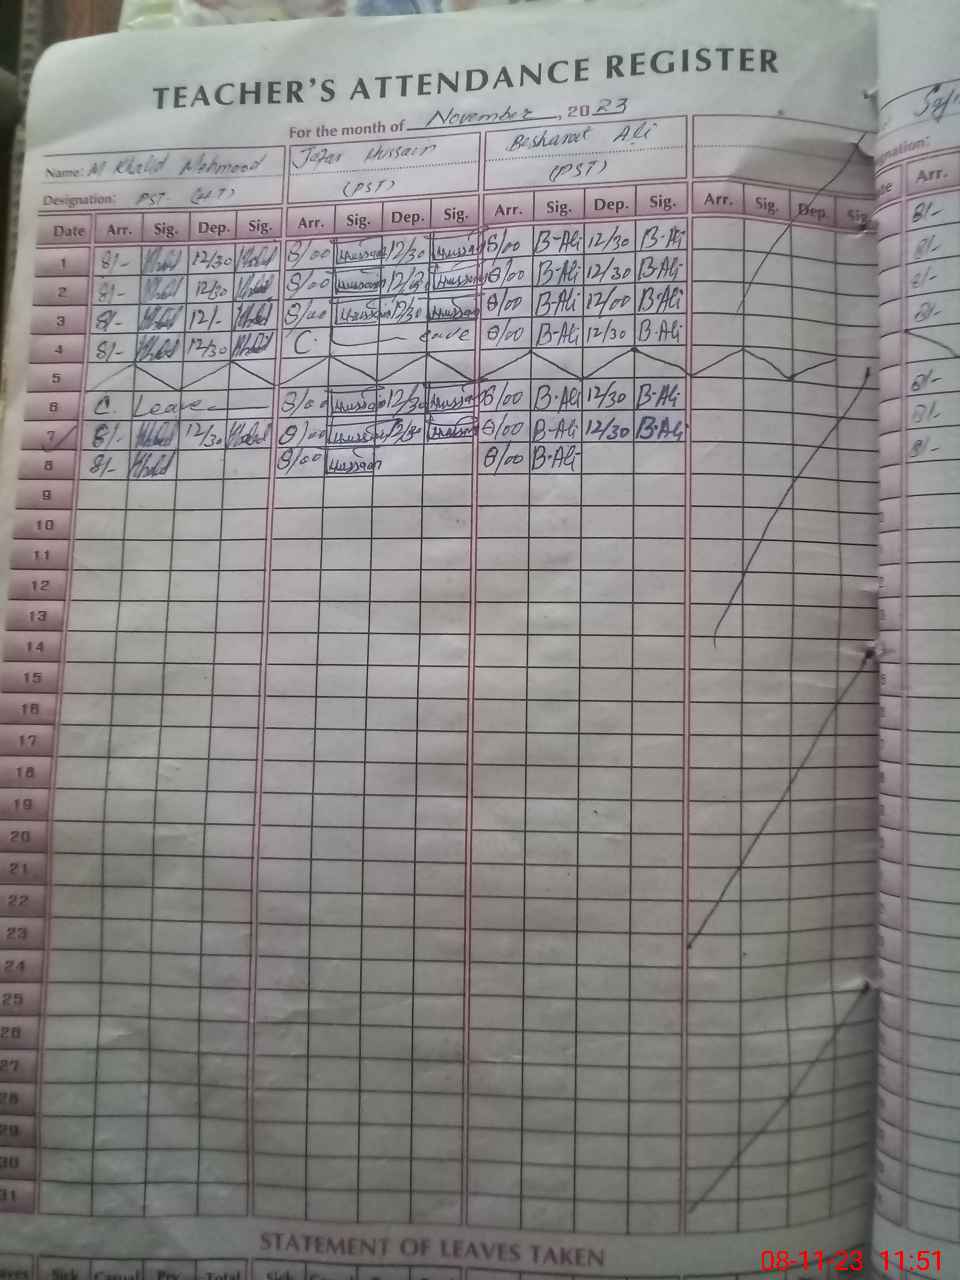 TEACHER'S ATTENDANCE REGISTER
For the month of November, 2023
Name: M Khalid Mehmood Jafar Hussain Besharat Ali
Designation: PST (H.T) (PST) (PST) gnation:
Date Arr. Sig. Dep. Sig. Arr. Sig. Dep. Sig. Arr. Sig. Dep. Sig. Arr. Sig. Dep. Sig. Arr.
1 8/- Khalid 12/30 Khalid 8/00 Hussain 12/30 Hussain 8/00 B-Ali 12/30 B-Ali 8/-
2 8/- Khalid 12/30 Khalid 8/00 Hussain 12/30 Hussain 8/00 B-Ali 12/30 B-Ali 8/-
3 8/- Khalid 12/- Khalid 8/00 Hussain Hussain 8/00 B-Ali 12/00 B-Ali 8/-
4 8/- Khalid 12/30 Khalid C. Leave 8/00 B-Ali 12/30 B-Ali 8/-
5
6 C. Leave 8/00 Hussain 12/30 Hussain 8/00 B-Ali 12/30 B-Ali 8/-
7 8/- Khalid 12/30 Khalid 8/00 Hussain 12/30 Hussain 8/00 B-Ali 12/30 B-Ali 8/-
8 8/- Khalid 8/00 Hussain 8/00 B-Ali 8/-
9
10
11
12
13
14
15
16
17
18
19
20
21
22
23
24
25
26
27
28
29
30
31
STATEMENT OF LEAVES TAKEN
Sick Casual Prv. Total Sick
08-11-23 11:51